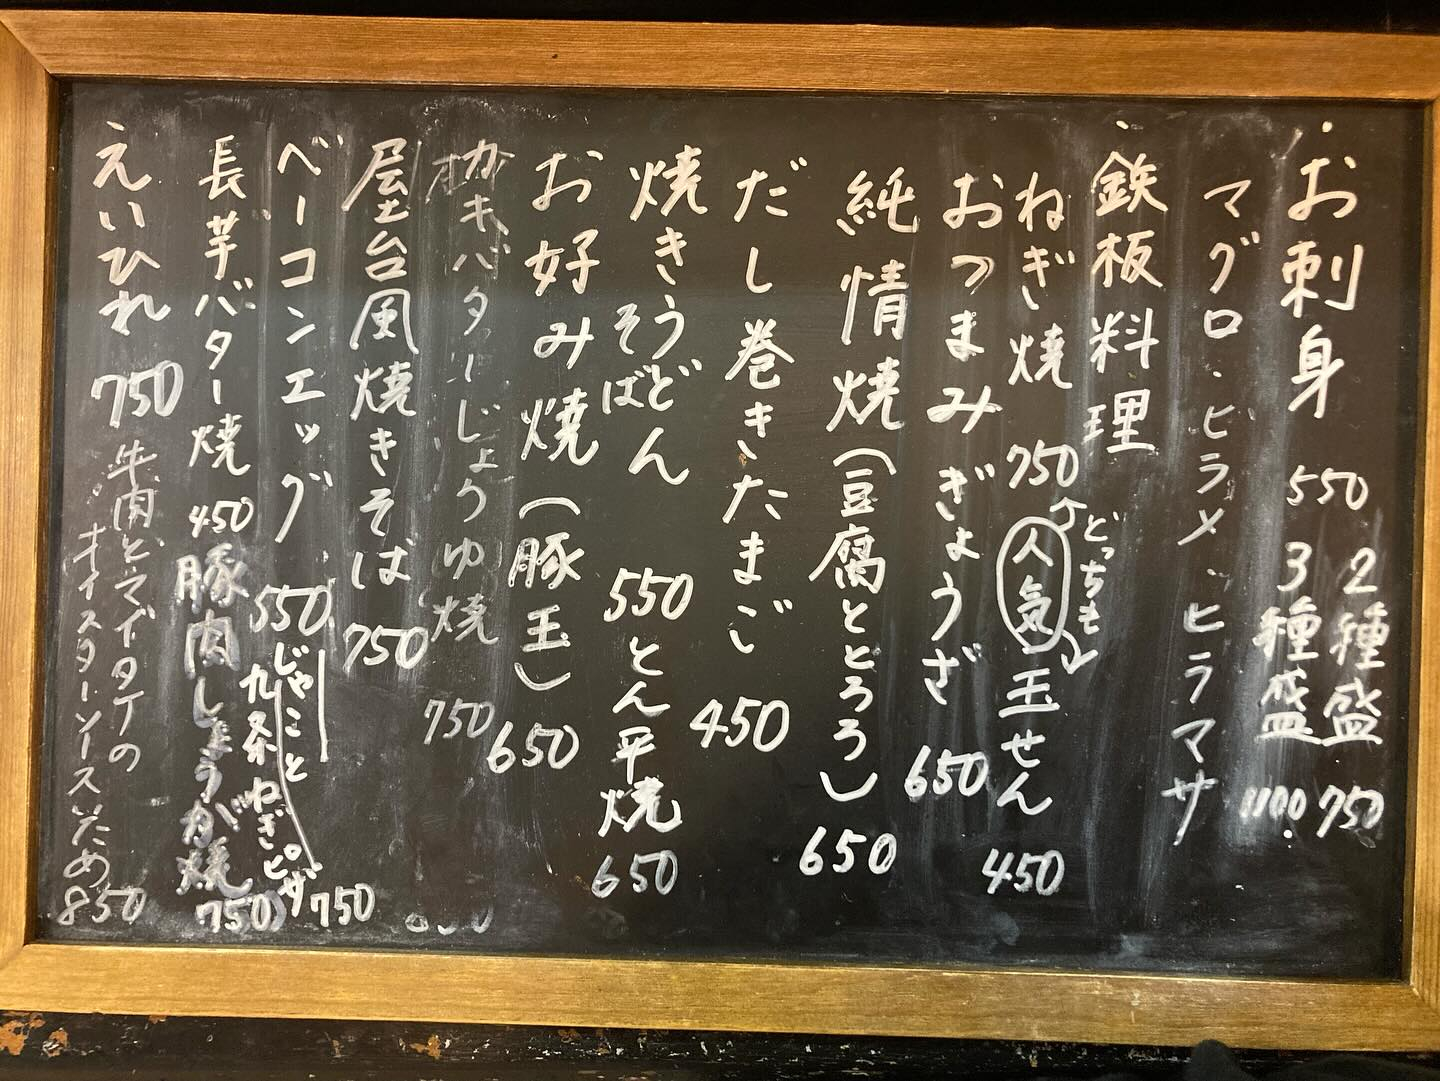 お刺身 550 2種盛 750
3種盛 1100
マグロ・ビラメ・ヒラマサ
鉄板料理
ねぎ焼 750 どっちも
人気 玉せん 450
おつまみぎょうざ 650
純情焼(豆腐ととろろ) 650
だし巻きたまご 450
焼きうどん 550
そば
とん平焼 650
お好み焼(豚玉) 650
カキバターじょうゆ焼 750
屋台風焼きそば 750
ベーコンエッグ 550
じゃこと
九条ねぎピザ 750
長芋バター焼 450
豚肉しょうが焼 750
えいひれ 750
牛肉とマイタケの
オイスターソースいため 850